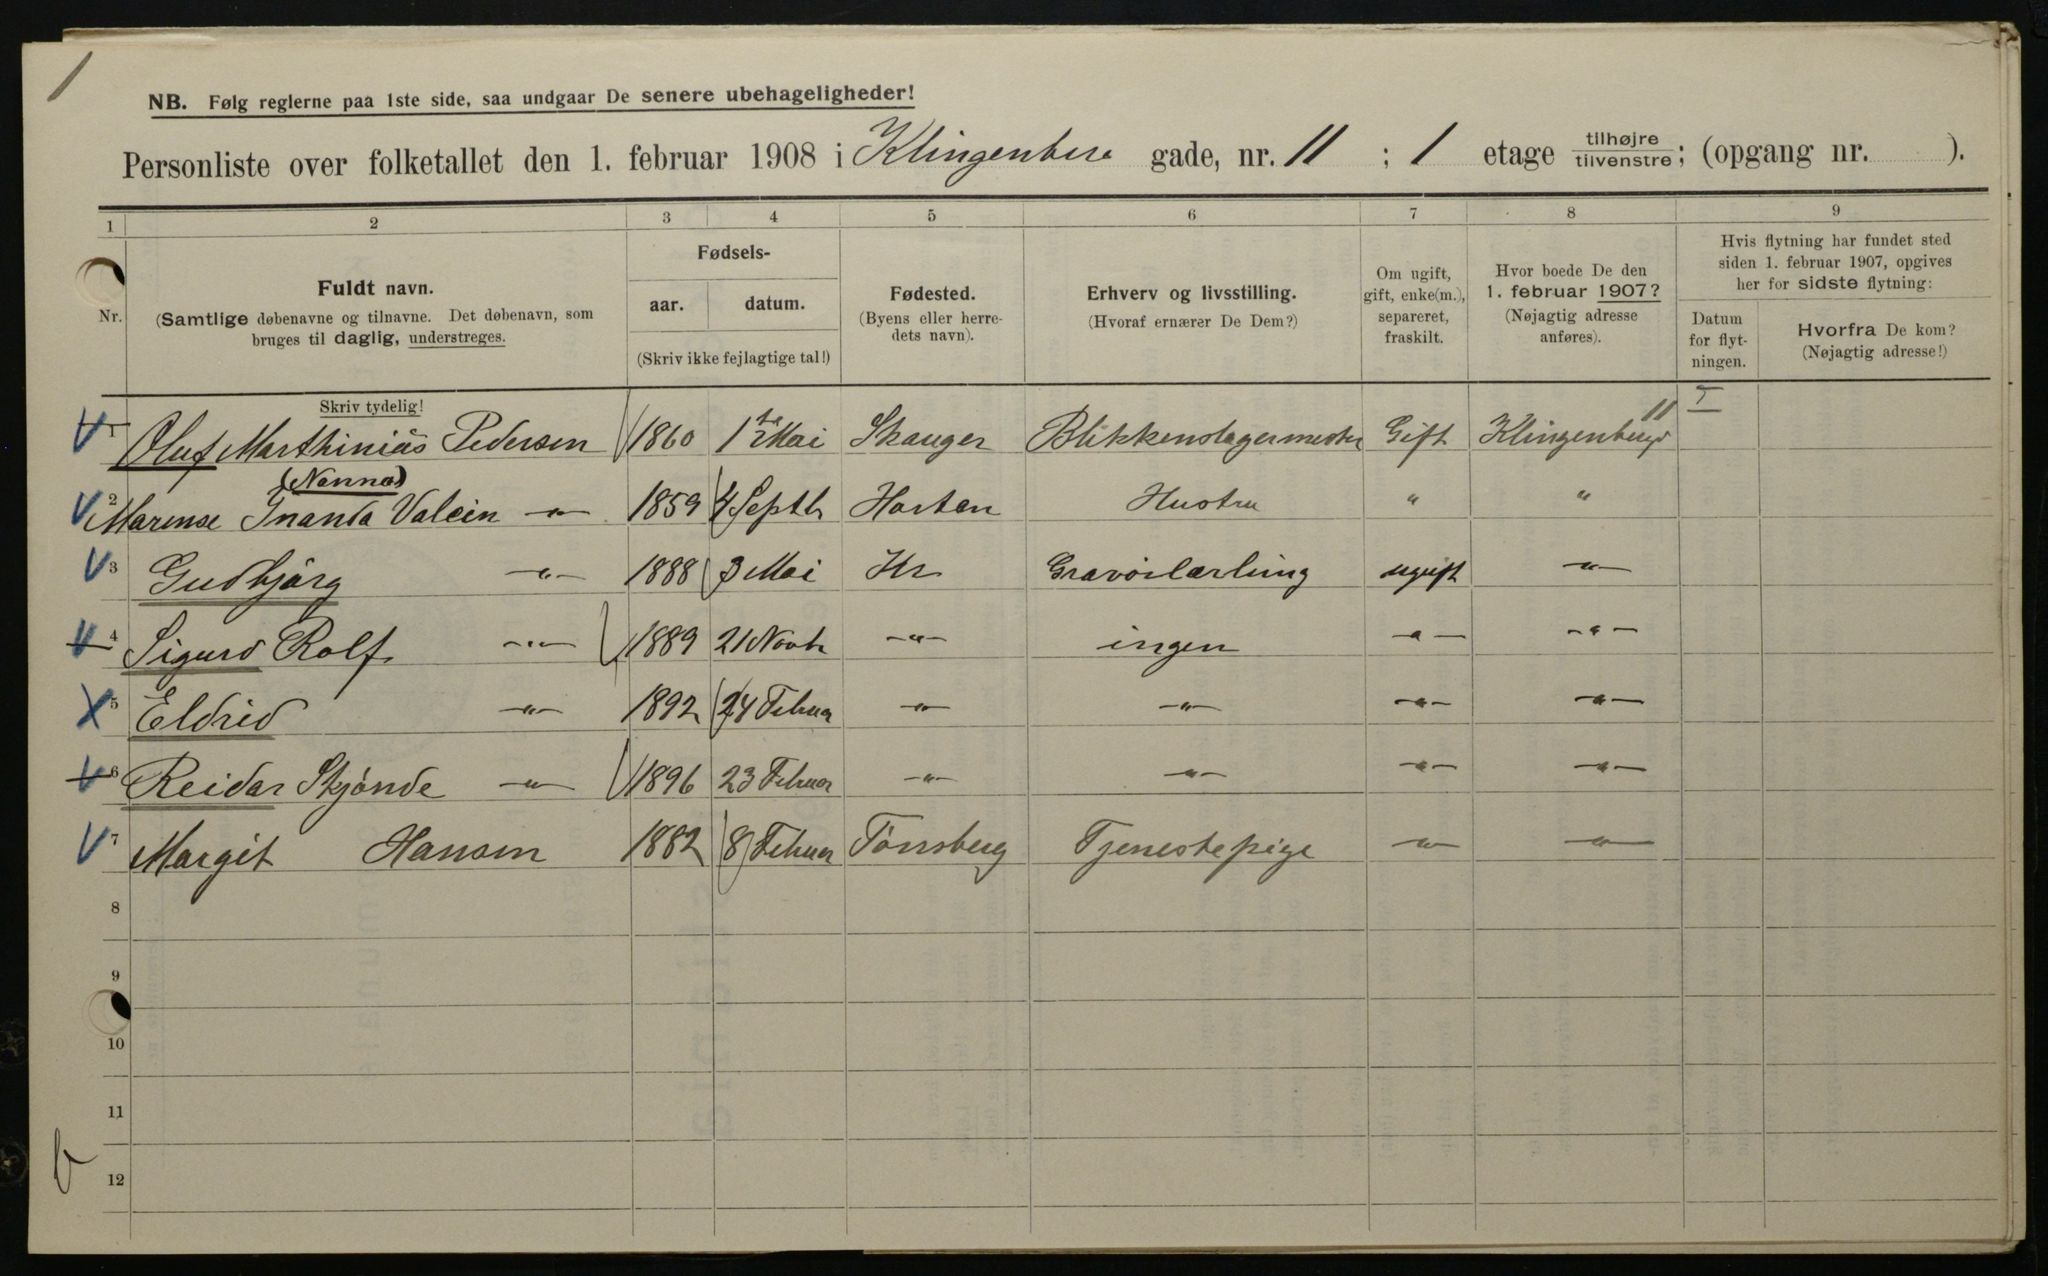 1
NB. Følg reglerne paa 1ste side, saa undgaar De senere ubehageligheder!
Personliste over folketallet den 1. februar 1908 i Klingenberg gade, nr. 11 ; 1 etage tilhøjre/tilvenstre; (opgang nr. ).
1 2 3 4 5 6 7 8 9
Nr.
Fuldt navn.
(Samtlige døbenavne og tilnavne. Det døbenavn, som
bruges til daglig, understreges.
Skriv tydelig!
Fødsels-
aar. datum.
(Skriv ikke fejlagtige tal!)
Fødested.
(Byens eller herre-
dets navn).
Erhverv og livsstilling.
(Hvoraf ernærer De Dem?)
Om ugift,
gift, enke(m.),
separeret,
fraskilt.
Hvor boede De den
1. februar 1907?
(Nøjagtig adresse
anføres).
Hvis flytning har fundet sted
siden 1. februar 1907, opgives
her for sidste flytning:
Datum
for flyt-
ningen.
Hvorfra De kom?
(Nøjagtig adresse!)
1 Oluf Marthinias Pedersen 1860 1 Mai Skauger Blikkenslagermester Gift Klingenbergd 11
(Nanna)
2 Marense Inanda Valein -"- 1859 4 Septb Horten Hustru " "
3 Gudbjørg -"- 1888 3 Mai Kr Gravørlærling ugift -"-
4 Sigurd Rolf -"- 1889 21 Novb -"- ingen -"- -"-
5 Eldrid -"- 1892 24 Februar -"- -"- -"- -"-
6 Reidar Skjønde -"- 1896 23 Februar -"- -"- -"- -"-
7 Margit Hansen 1882 8 Februar Tønsberg Tjenestepige -"- -"-
8
9
10
11
12